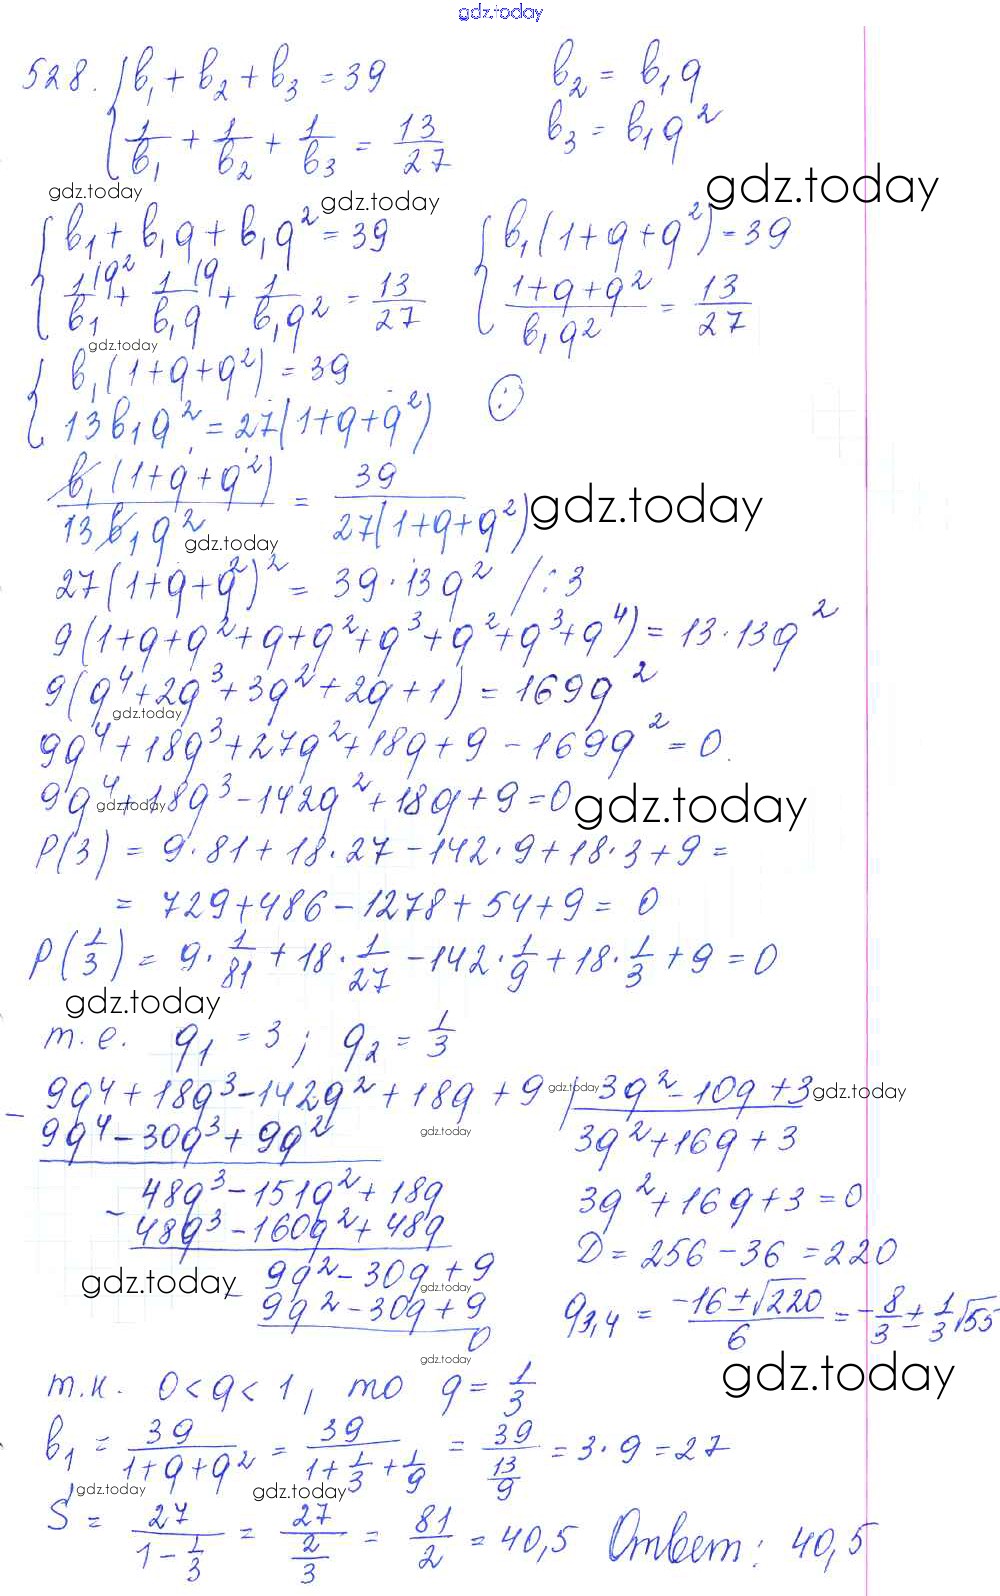 gdz.today
528. { b₁ + b₂ + b₃ = 39    b₂ = b₁q
{ 1/b₁ + 1/b₂ + 1/b₃ = 13/27    b₃ = b₁q²
gdz.today gdz.today gdz.today
{ b₁ + b₁q + b₁q² = 39    { b₁(1+q+q²) = 39
{ 1/b₁ \q² + 1/b₁q \q + 1/b₁q² = 13/27    { (1+q+q²)/(b₁q²) = 13/27
gdz.today
{ b₁(1+q+q²) = 39
{ 13b₁q² = 27(1+q+q²)    (:)
b₁(1+q+q²)/(13b₁q²) = 39/(27(1+q+q²)) gdz.today
gdz.today
27(1+q+q²)² = 39·13q² /:3
9(1+q+q²+q+q²+q³+q²+q³+q⁴) = 13·13q²
9(q⁴+2q³+3q²+2q+1) = 169q²
gdz.today
9q⁴+18q³+27q²+18q+9-169q² = 0.
9q⁴+18q³-142q²+18q+9 = 0 gdz.today
gdz.today
P(3) = 9·81+18·27-142·9+18·3+9 =
= 729+486-1278+54+9 = 0
P(1/3) = 9·1/81+18·1/27-142·1/9+18·1/3+9 = 0
gdz.today
т.е. q₁ = 3; q₂ = 1/3
9q⁴+18q³-142q²+18q+9 gdz.today | 3q²-10q+3 gdz.today
- 9q⁴-30q³+9q² gdz.today    3q²+16q+3
48q³-151q²+18q    3q²+16q+3 = 0
- 48q³-160q²+48q    D = 256-36 = 220
gdz.today - 9q²-30q+9 gdz.today
9q²-30q+9    q₃,₄ = (-16±√220)/6 = -8/3 ± 1/3√55
0
gdz.today gdz.today
т.к. 0<q<1, то q = 1/3
b₁ = 39/(1+q+q²) = 39/(1+1/3+1/9) = 39/(13/9) = 3·9 = 27
gdz.today gdz.today
S = 27/(1-1/3) = 27/(2/3) = 81/2 = 40,5    Ответ: 40,5